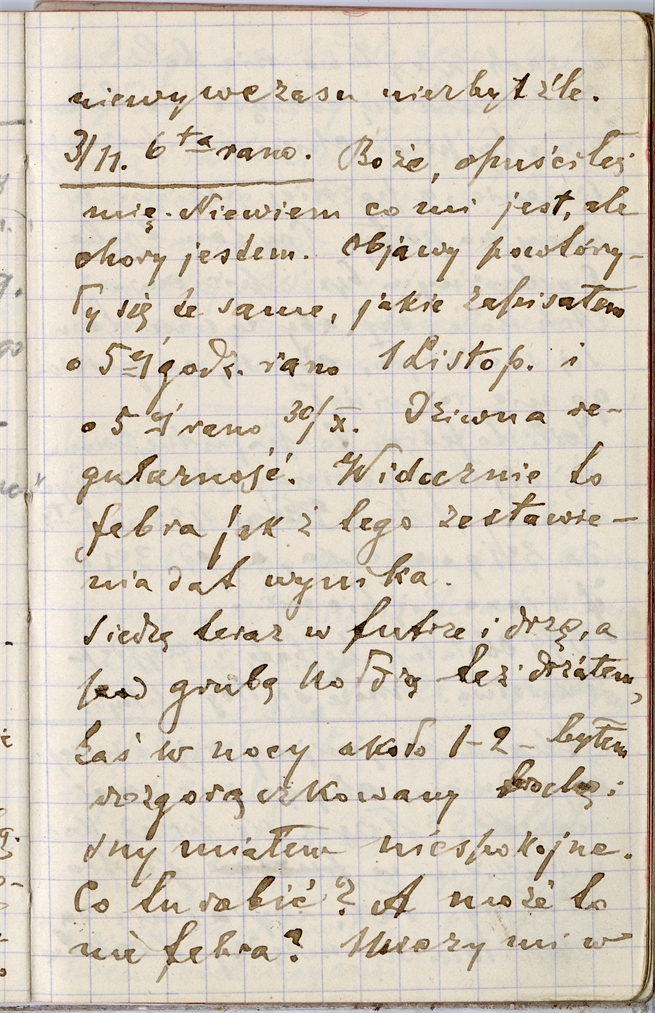 niewywczasu niezbyt źle.
3/11. 6 ta rano. Boże, opuściłeś
mię. Niewiem co mi jest, ale
chory jestem. Objawy powtórzy-
ły się te same, jakie zapisałem
o 5 ej godz. rano 1 Listop. i
o 5 ej rano 30/X. Dziwna re-
gularność. Widocznie to
febra jak z tego zestawie-
nia dat wynika.
Siedzę teraz w futrze i drżę, a
pod grubą kołdrą też drżałem,
zaś w nocy około 1-2 - byłem
rozgorączkowany trochę i
sny miałem niespokojne.
Co tu robić? A może to
nie febra? Mrozy mi w